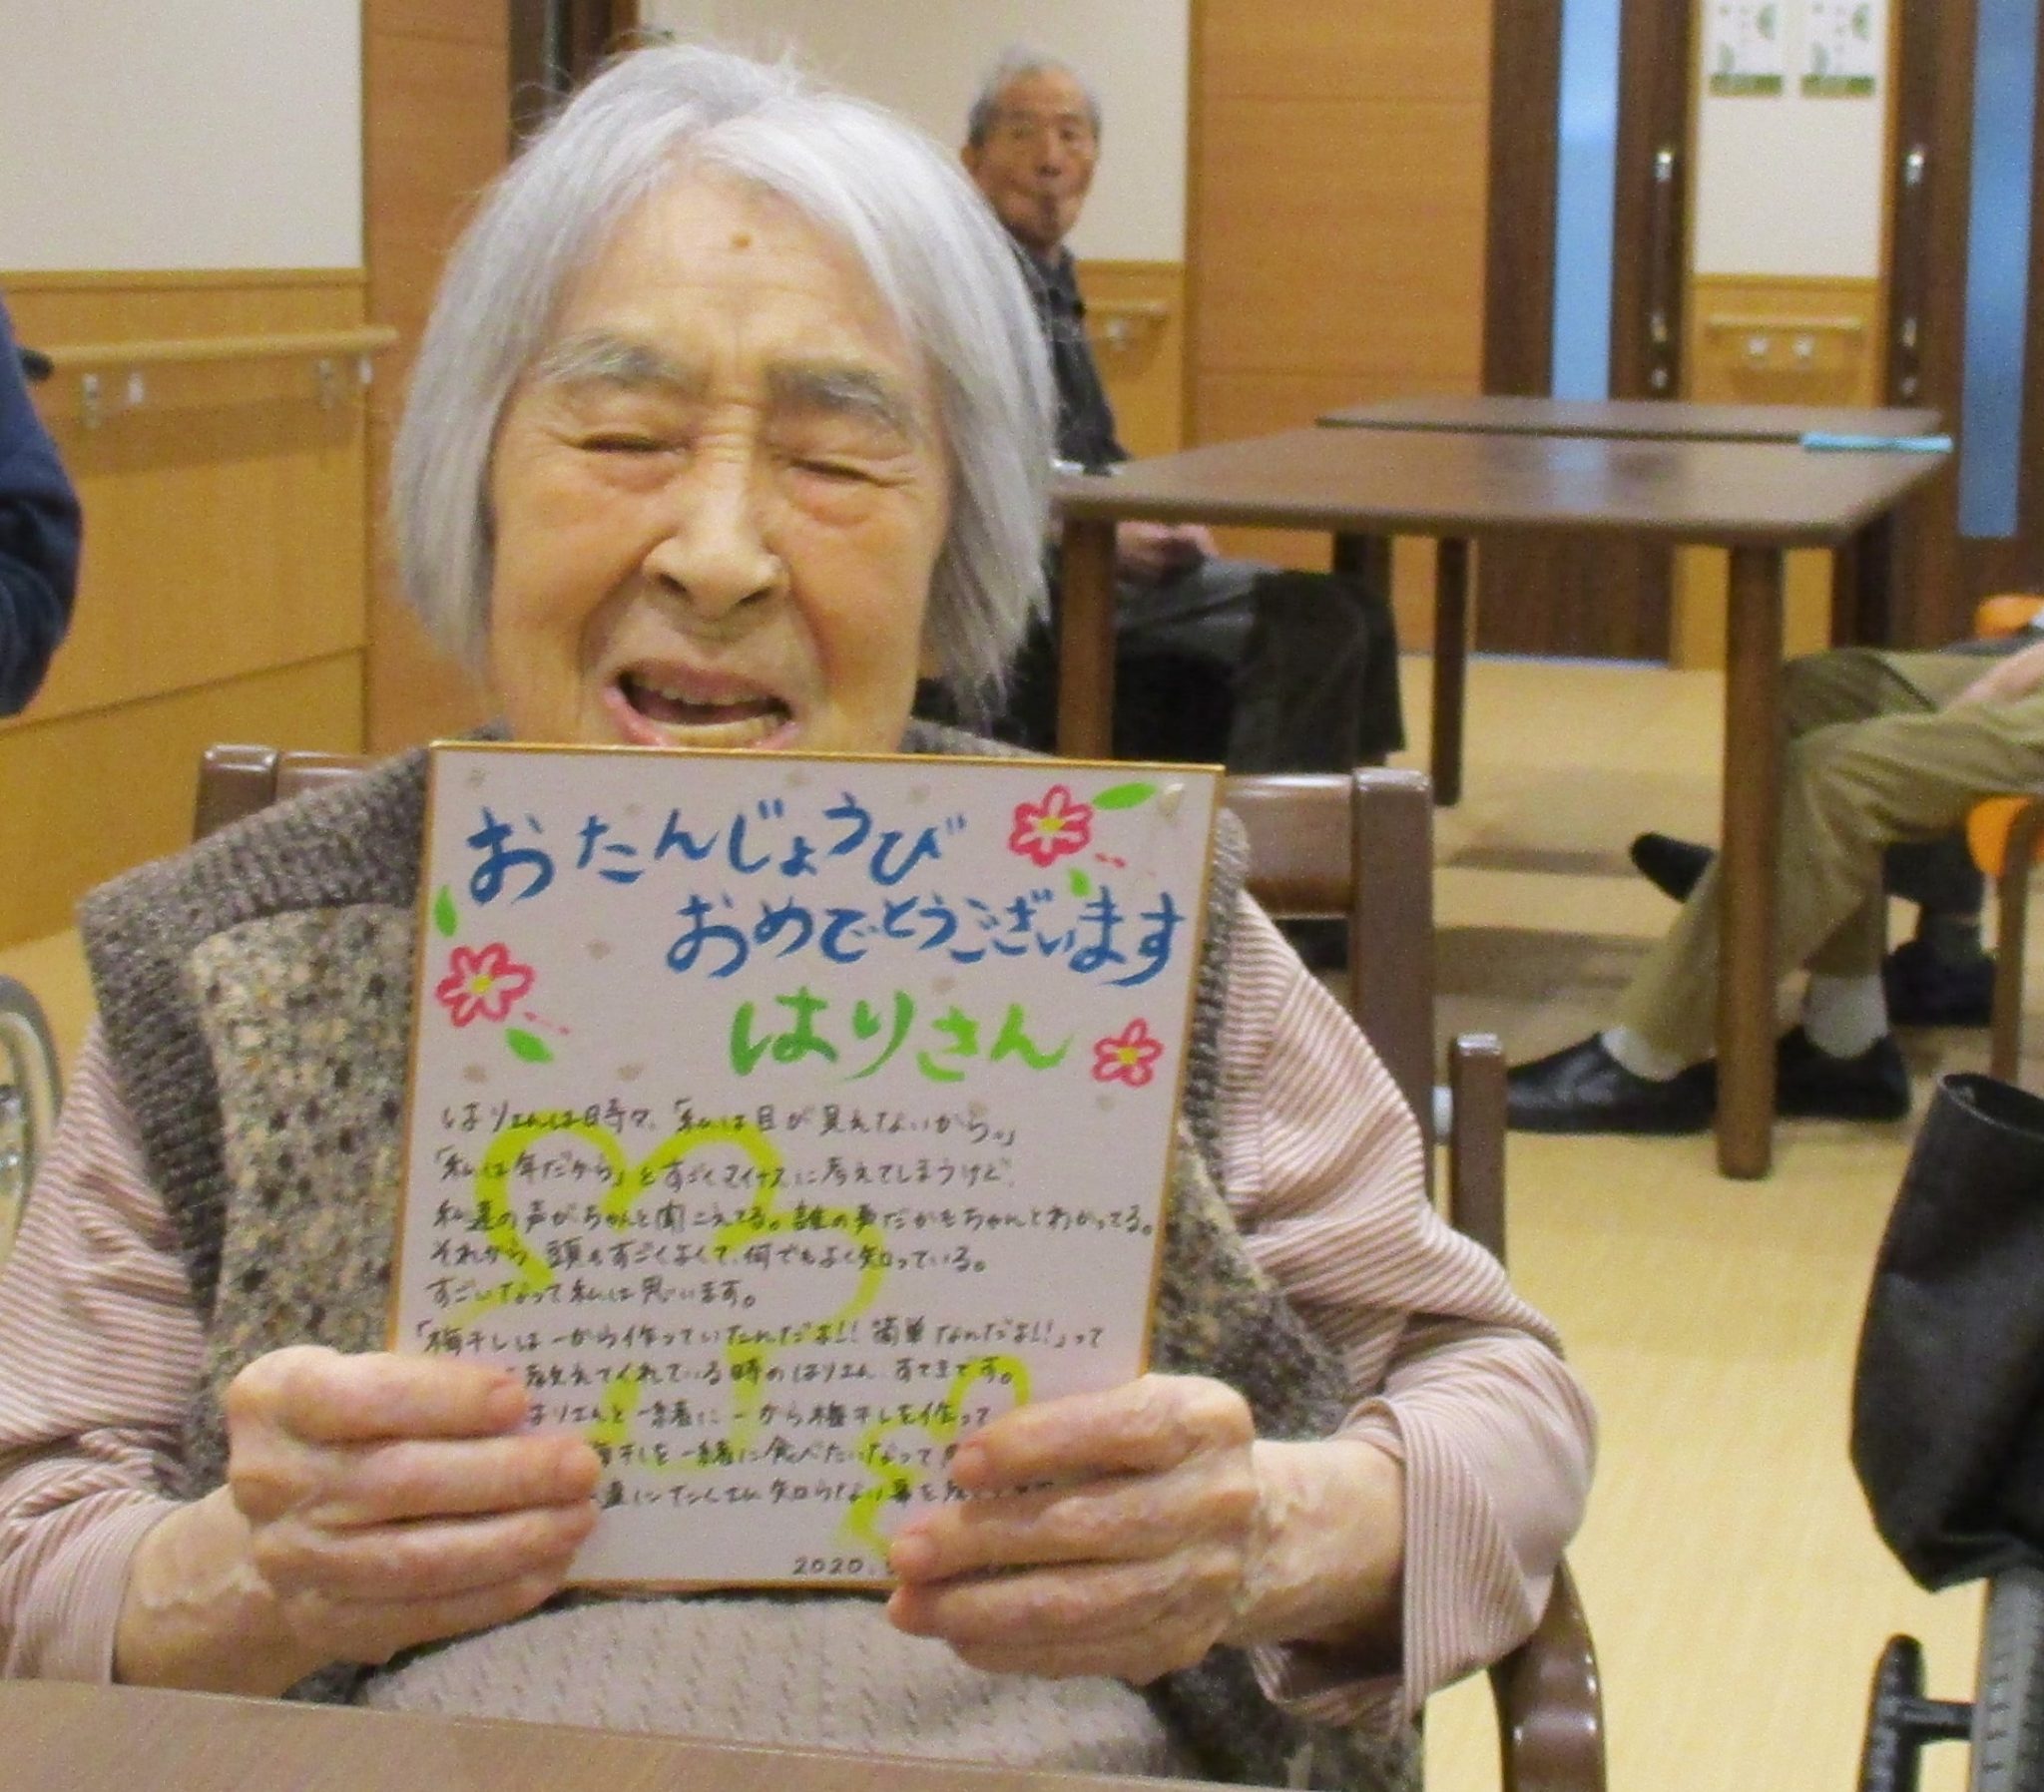 おたんじょうび
おめでとうございます
はりさん
はりさんは時々、「私は目が見えないから。」
「私は年だから」とすごくマイナスに考えてしまうけど、
私達の声がちゃんと聞こえてる。誰の声だかもちゃんとわかってる。
それから 頭もすごくよくて、何でもよく知っている。
すごいなって私は思います。
「梅干しは一から作っていたんだよ!! 簡単なんだよ!!」って
教えてくれている時のはりさん すてきです。
はりさんと一緒に一から梅干しを作って
梅干しを一緒に食べたいなって
達にたくさん知らない事を
2020.